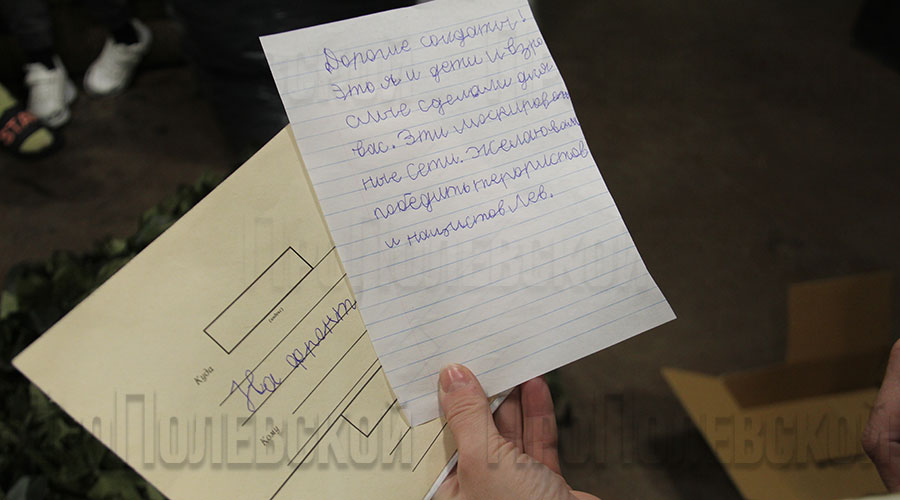 Дорогие солдаты!
Это я и дети и взро
слые сделали для
вас. Эти маскировоч
ные сети. Желаю вам
победить терористов
и нацистов Лев.
Куда
На фронт
Кому
STA
ПроПолевской
ПроПолевской
ПроПолевской